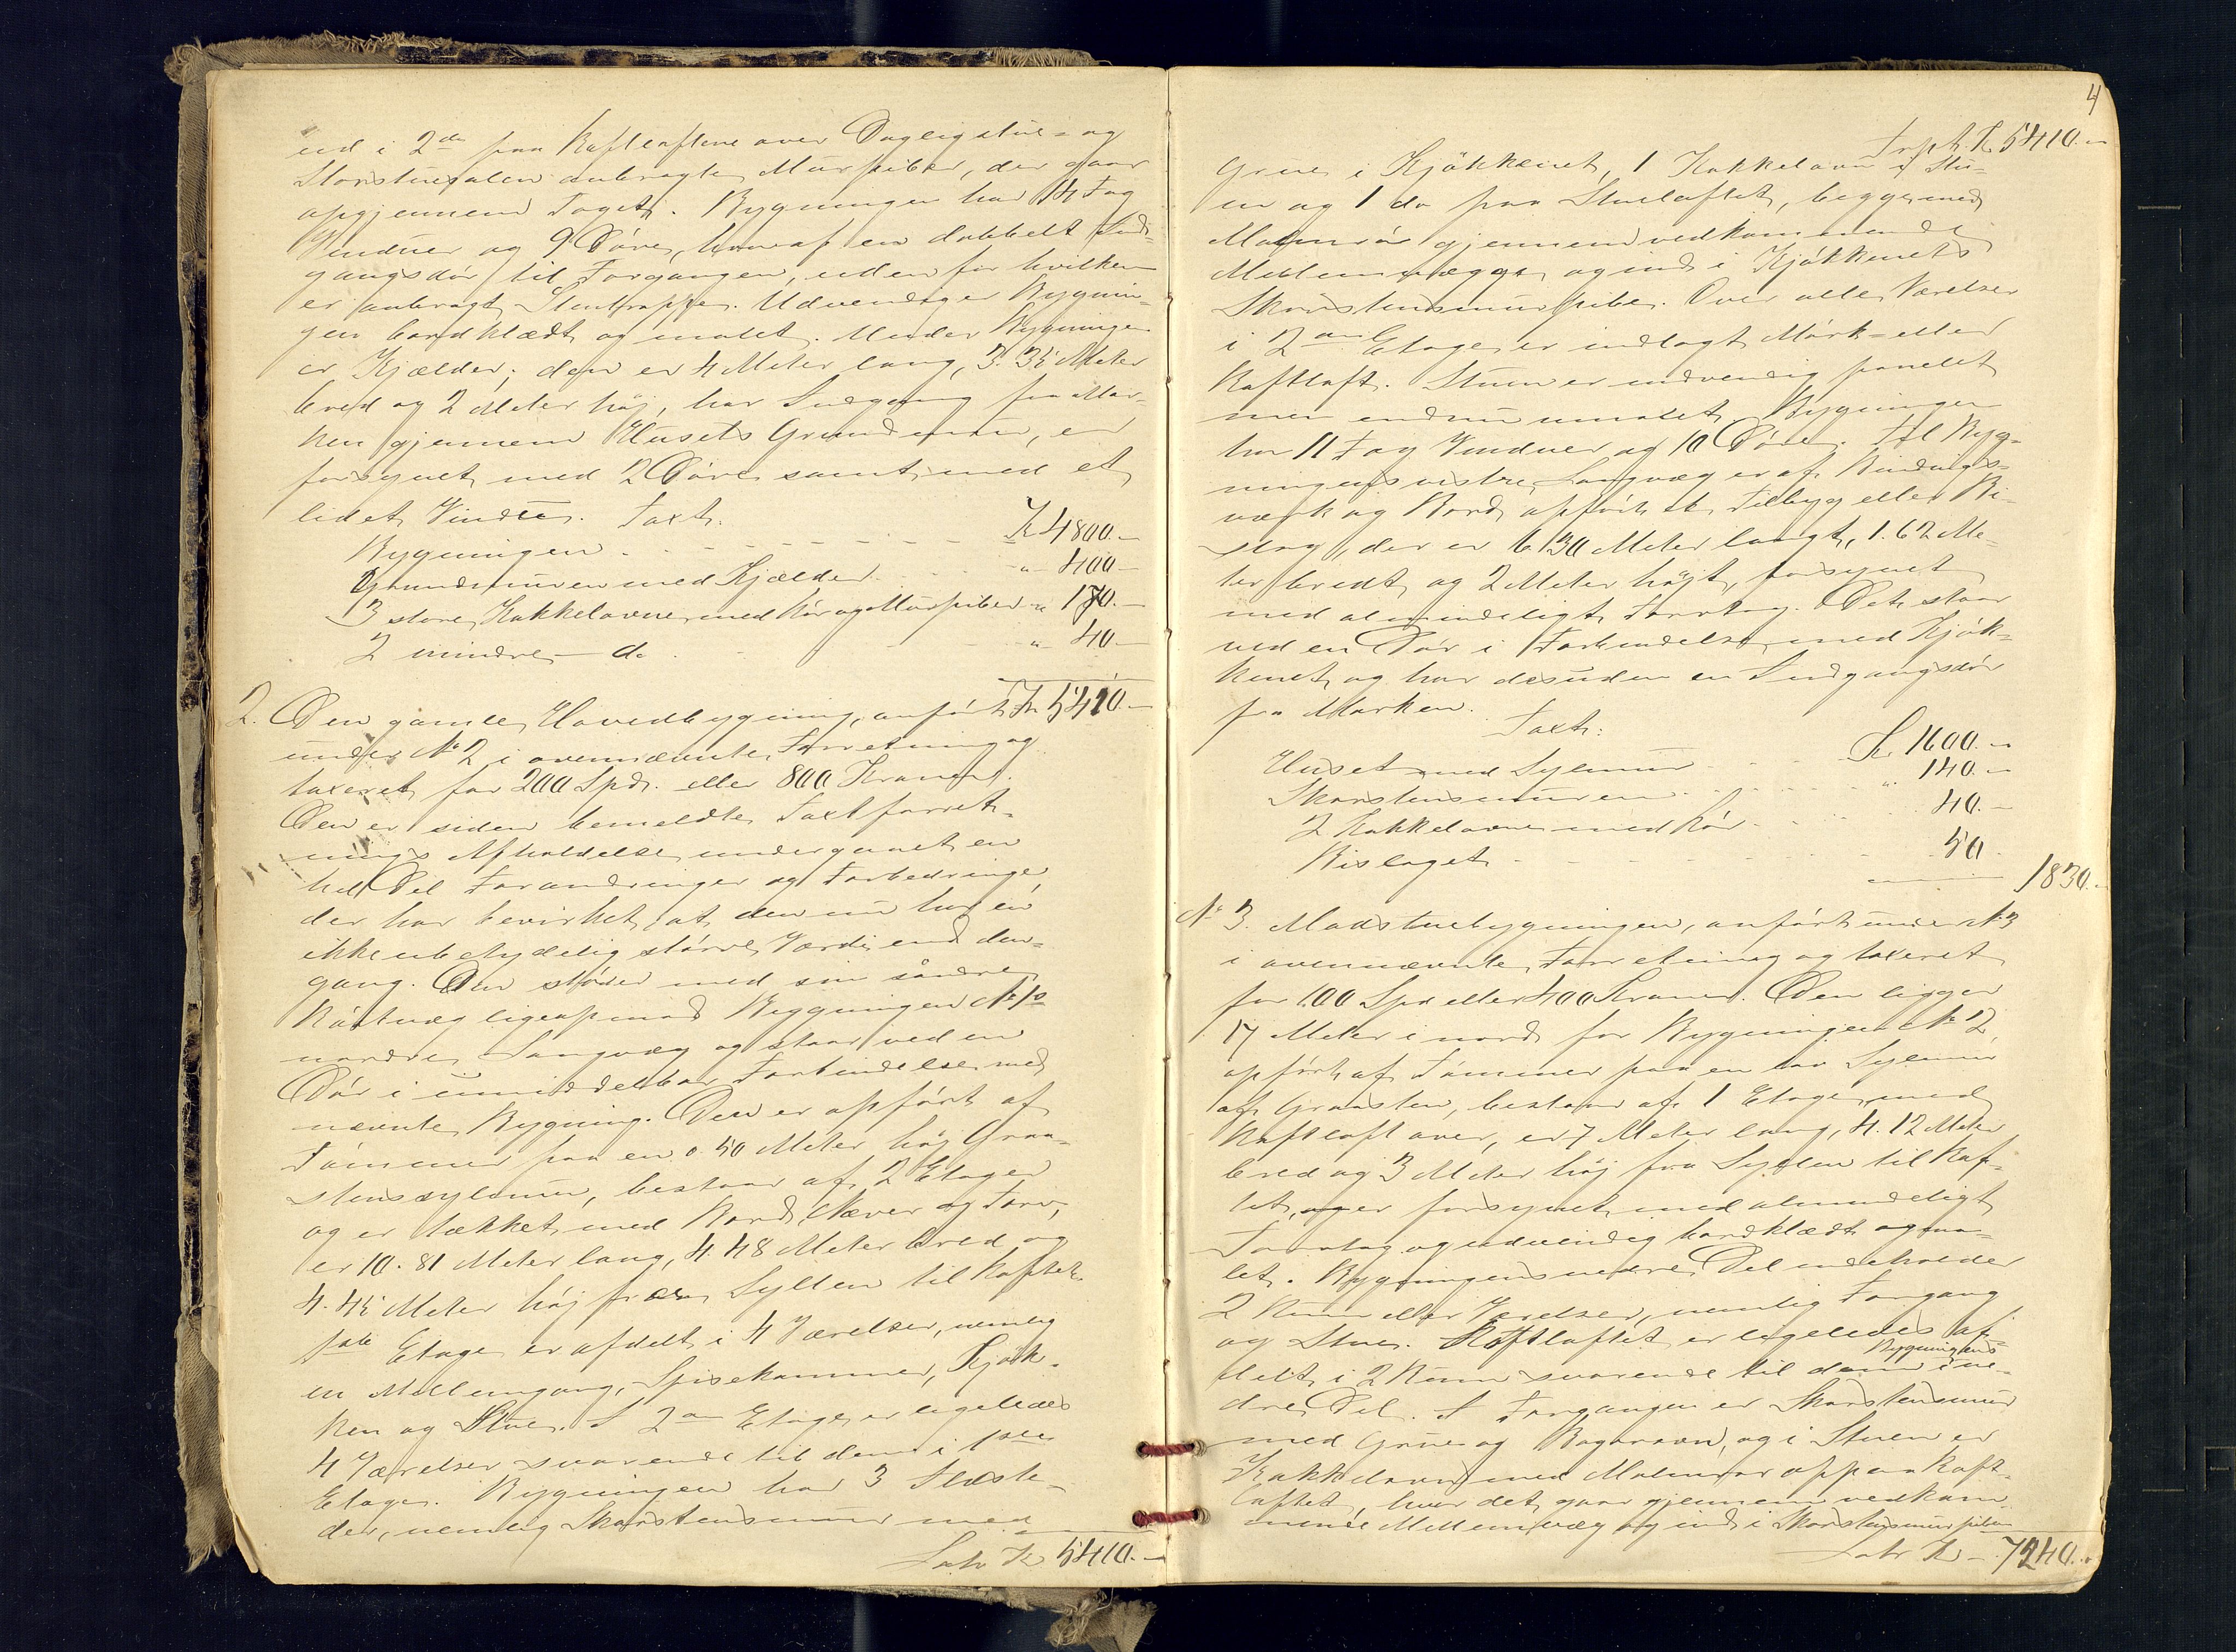 ud i 2de paa Loftloftene over Dagligstue- og
Storstuesalen anbragte Murpiber, der gaar
opgjennem Taget. Bygningen har 14 Fag
Vinduer og 9 Døre, hvoraf en dobbelt Ind-
gangsdør til Forgangen, uden for hvilken
er anbragt Stentrappe. Udvendig er Bygnin-
gen bordklædt og malet. Under Bygningen
er Kjælder; den er 4 Meter lang, 3.35 Meter
bred og 2 Meter høj, har Indgang fra Mar-
ken gjennem Husets Grundmur, er
forsynet med 2 Døre samt med et
lidet Vindue. Taxt.
Bygningen . - - - - - - - Kr 4800.-
Grundmuren med Kjælder . . . " 400-
3 store Kakkelovne med Rør og Murpiber " 170.-
2 mindre - do . . " 40-
Kr 5410.-
2. Den gamle Hovedbygning, anført
under No 2 i ovennævnte Forretning og
taxeret for 200 Spd. eller 800 Kroner.
Den er siden bemeldte Taxtforret-
nings Afholdelse undergaaet en
hel Del Forandringer og Forbedringer,
der har bevirket, at den nu har en
ikke ubetydelig større Værdi end den-
gang. Den støder med sin søndre
Røstvæg ligeopmod Bygningen No 1s
nordre Langvæg og staar ved en
Dør i umiddelbar Forbindelse med
nævnte Bygning. Den er opført af
Tømmer paa en 0.50 Meter høj Graa-
stenssylmur, bestaar af 2 Etager
og er tækket med Bord, Næver og Torv,
er 10.81 Meter lang, 4.48 Meter bred og
4.45 Meter høj fra Syllen til Raftet.
1ste Etage er afdelt i 4 Værelser, nemlig
en Mellemgang, Spisekammer, Kjøk-
ken og Stue. I 2den Etage er ligeledes
4 Værelser svarende til dem i 1ste
Etage. Bygningen har 3 Ildste-
der, nemlig Skorstensmur med
Lat. Kr 5410.-
4
Trpt. Kr 5410.-
Grue i Kjøkkenet, 1 Kakkelovn i Stu-
en og 1 do paa Stueloftet, begge med
Malmrør gjennem vedkommende
Mellemvægge og ind i Kjøkkenets
Skorstensmurpibe. Over alle Værelser
i 2den Etage er indlagt Mørk- eller
Loftloft. Stuen er indvendig panelet
men endnu umalet. Bygningen
har 11 Fag Vinduer og 10 Døre. Til Byg-
ningens vestre Langvæg er af Bindings-
værk og Bord opført et Tilbyg eller Bi-
slag, der er 6.30 Meter langt, 1.62 Me-
ter bredt og 2 Meter højt, forsynet
med almindeligt Torvtag. Det staar
ved en Dør i Forbindelse med Kjøk-
kenet og har desuden en Indgangsdør
fra Marken.
Taxt:
Huset med Sylmur - - - Kr 1600.-
Skorstensmuren . - - - " 140.-
2 Kakkelovne med Rør . - - 40.-
Bislaget - - - - 50
1830.-
No 3. Madstuebygningen, anført under No 3
i ovennævnte Forretning og taxeret
for 100 Spd eller 400 Kroner. Den ligger
17 Meter i nord for Bygningen No 2,
opført af Tømmer paa en lav Sylmur
af Graasten, bestaar af 1 Etage med
Loftloft over, er 7 Meter lang, 4.12 Meter
bred og 3 Meter høj fra Syllen til Raf-
tet, og er forsynet med almindeligt
Torvtag og udvendig bordklædt og ma-
let. Bygningens nedre Del indeholder
2 Rum eller Værelser, nemlig Forgang
og Stue. Loftloftet er ligeledes af-
delt i 2 Rum svarende til dem i Bygningens ne-
dre Del. I Forgangen er Skorstensmur
med Grue og Bagerovn, og i Stuen er
Kakkelovn med Malmrør op paa Loft-
loftet, hvor det gaar gjennem vedkom-
mende Mellemvæg og ind i Skorstensmurpiben
Lat. Kr - 7240.-